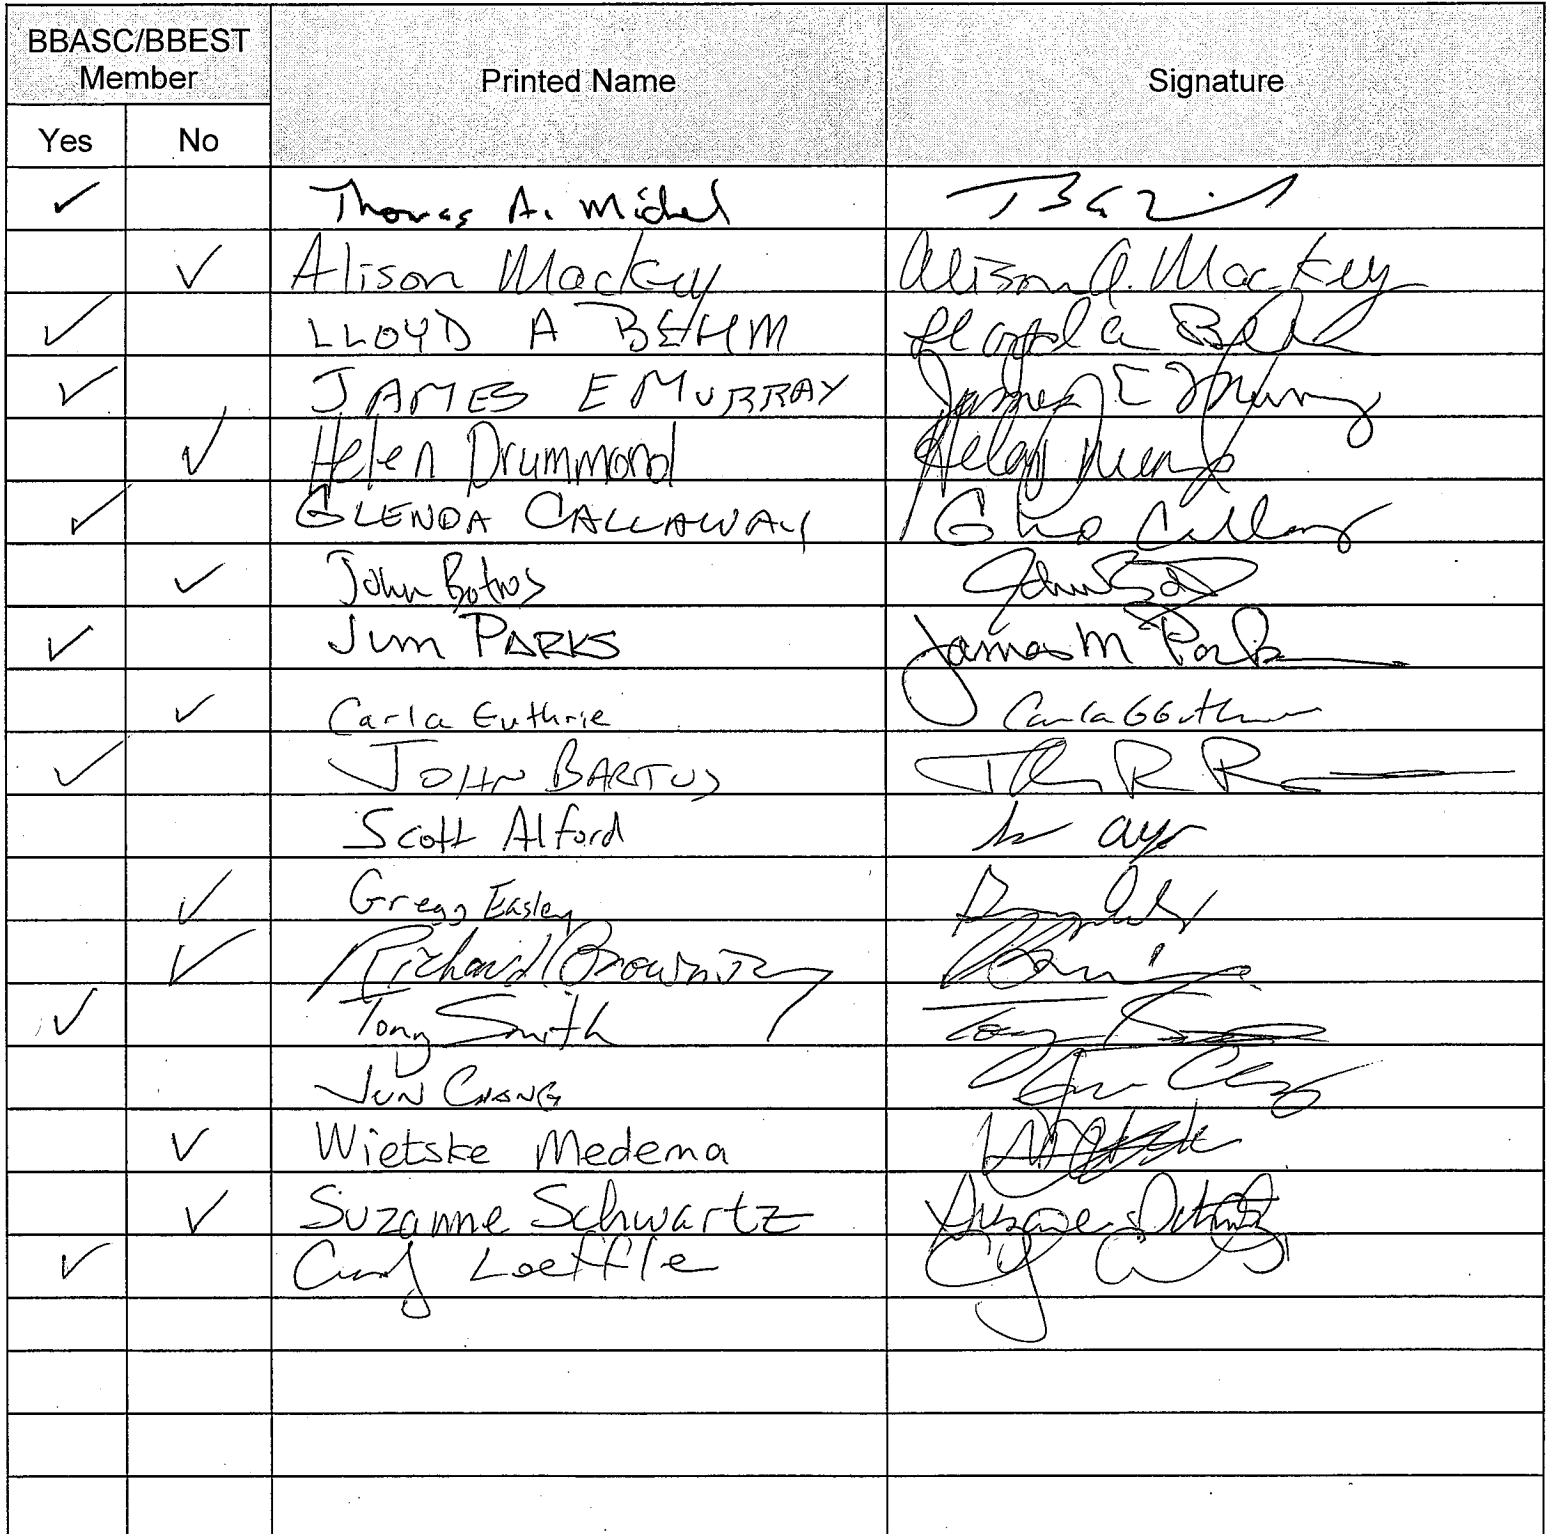 BBASC/BBEST Member Printed Name Signature
Yes No
✓ Thomas A. Michel
✓ Alison Mackey Alison A. Mackey
✓ LLOYD A BEHM Lloyd A Behm
✓ JAMES E MURRAY James E Murray
✓ Helen Drummond Helen
✓ GLENDA CALLAWAY
✓ John Botros John
✓ Jim PARKS James M Parks
✓ Carla Guthrie Carla G Guthrie
✓ JOHN BARTUS
Scott Alford
✓ Gregg Easley
✓ Richard Browning
✓ Tony Smith Tony
JUN CHANG
✓ Wietske Medema
✓ Suzanne Schwartz Suzanne Schwartz
✓ Cindy Loeffle